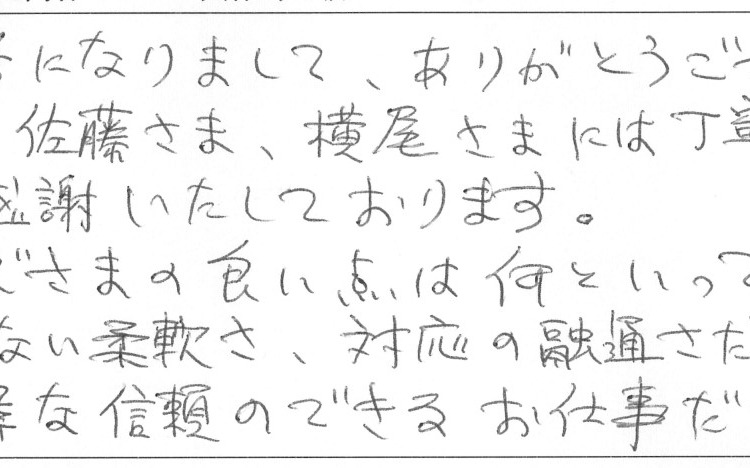 になりまして、ありがとうご
佐藤さま、横尾さまには丁
感謝いたしております。
さまの良い点は何といって
ない柔軟さ、対応の融通さ
な信頼のできるお仕事だ